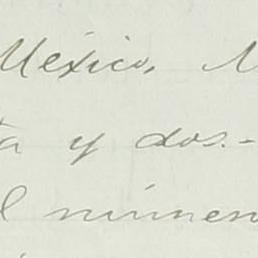 México, M
ta y dos.-
l númer